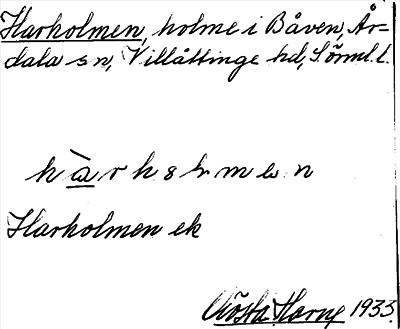 Harholmen, holme i Båven, År-
dala sn, Villåttinge hd, Sörml. l.
Harholmen ek
Gösta Harne 1933.